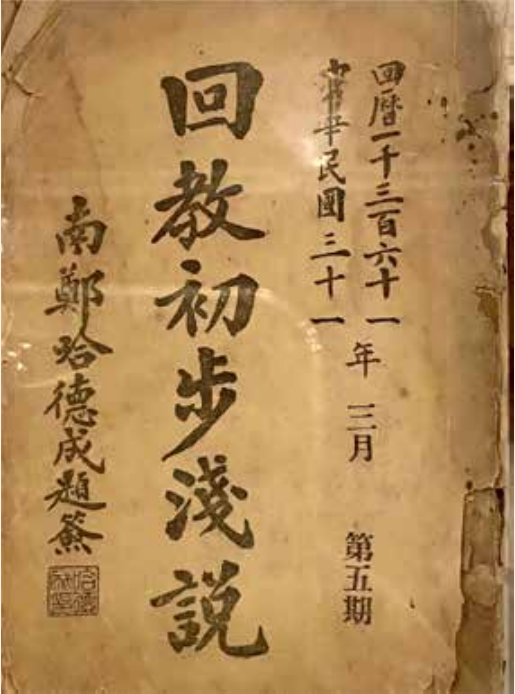 回暦一千三百六十一
中華民國三十一
年 三月 第五期
回教初步淺説
南鄭哈德成題簽